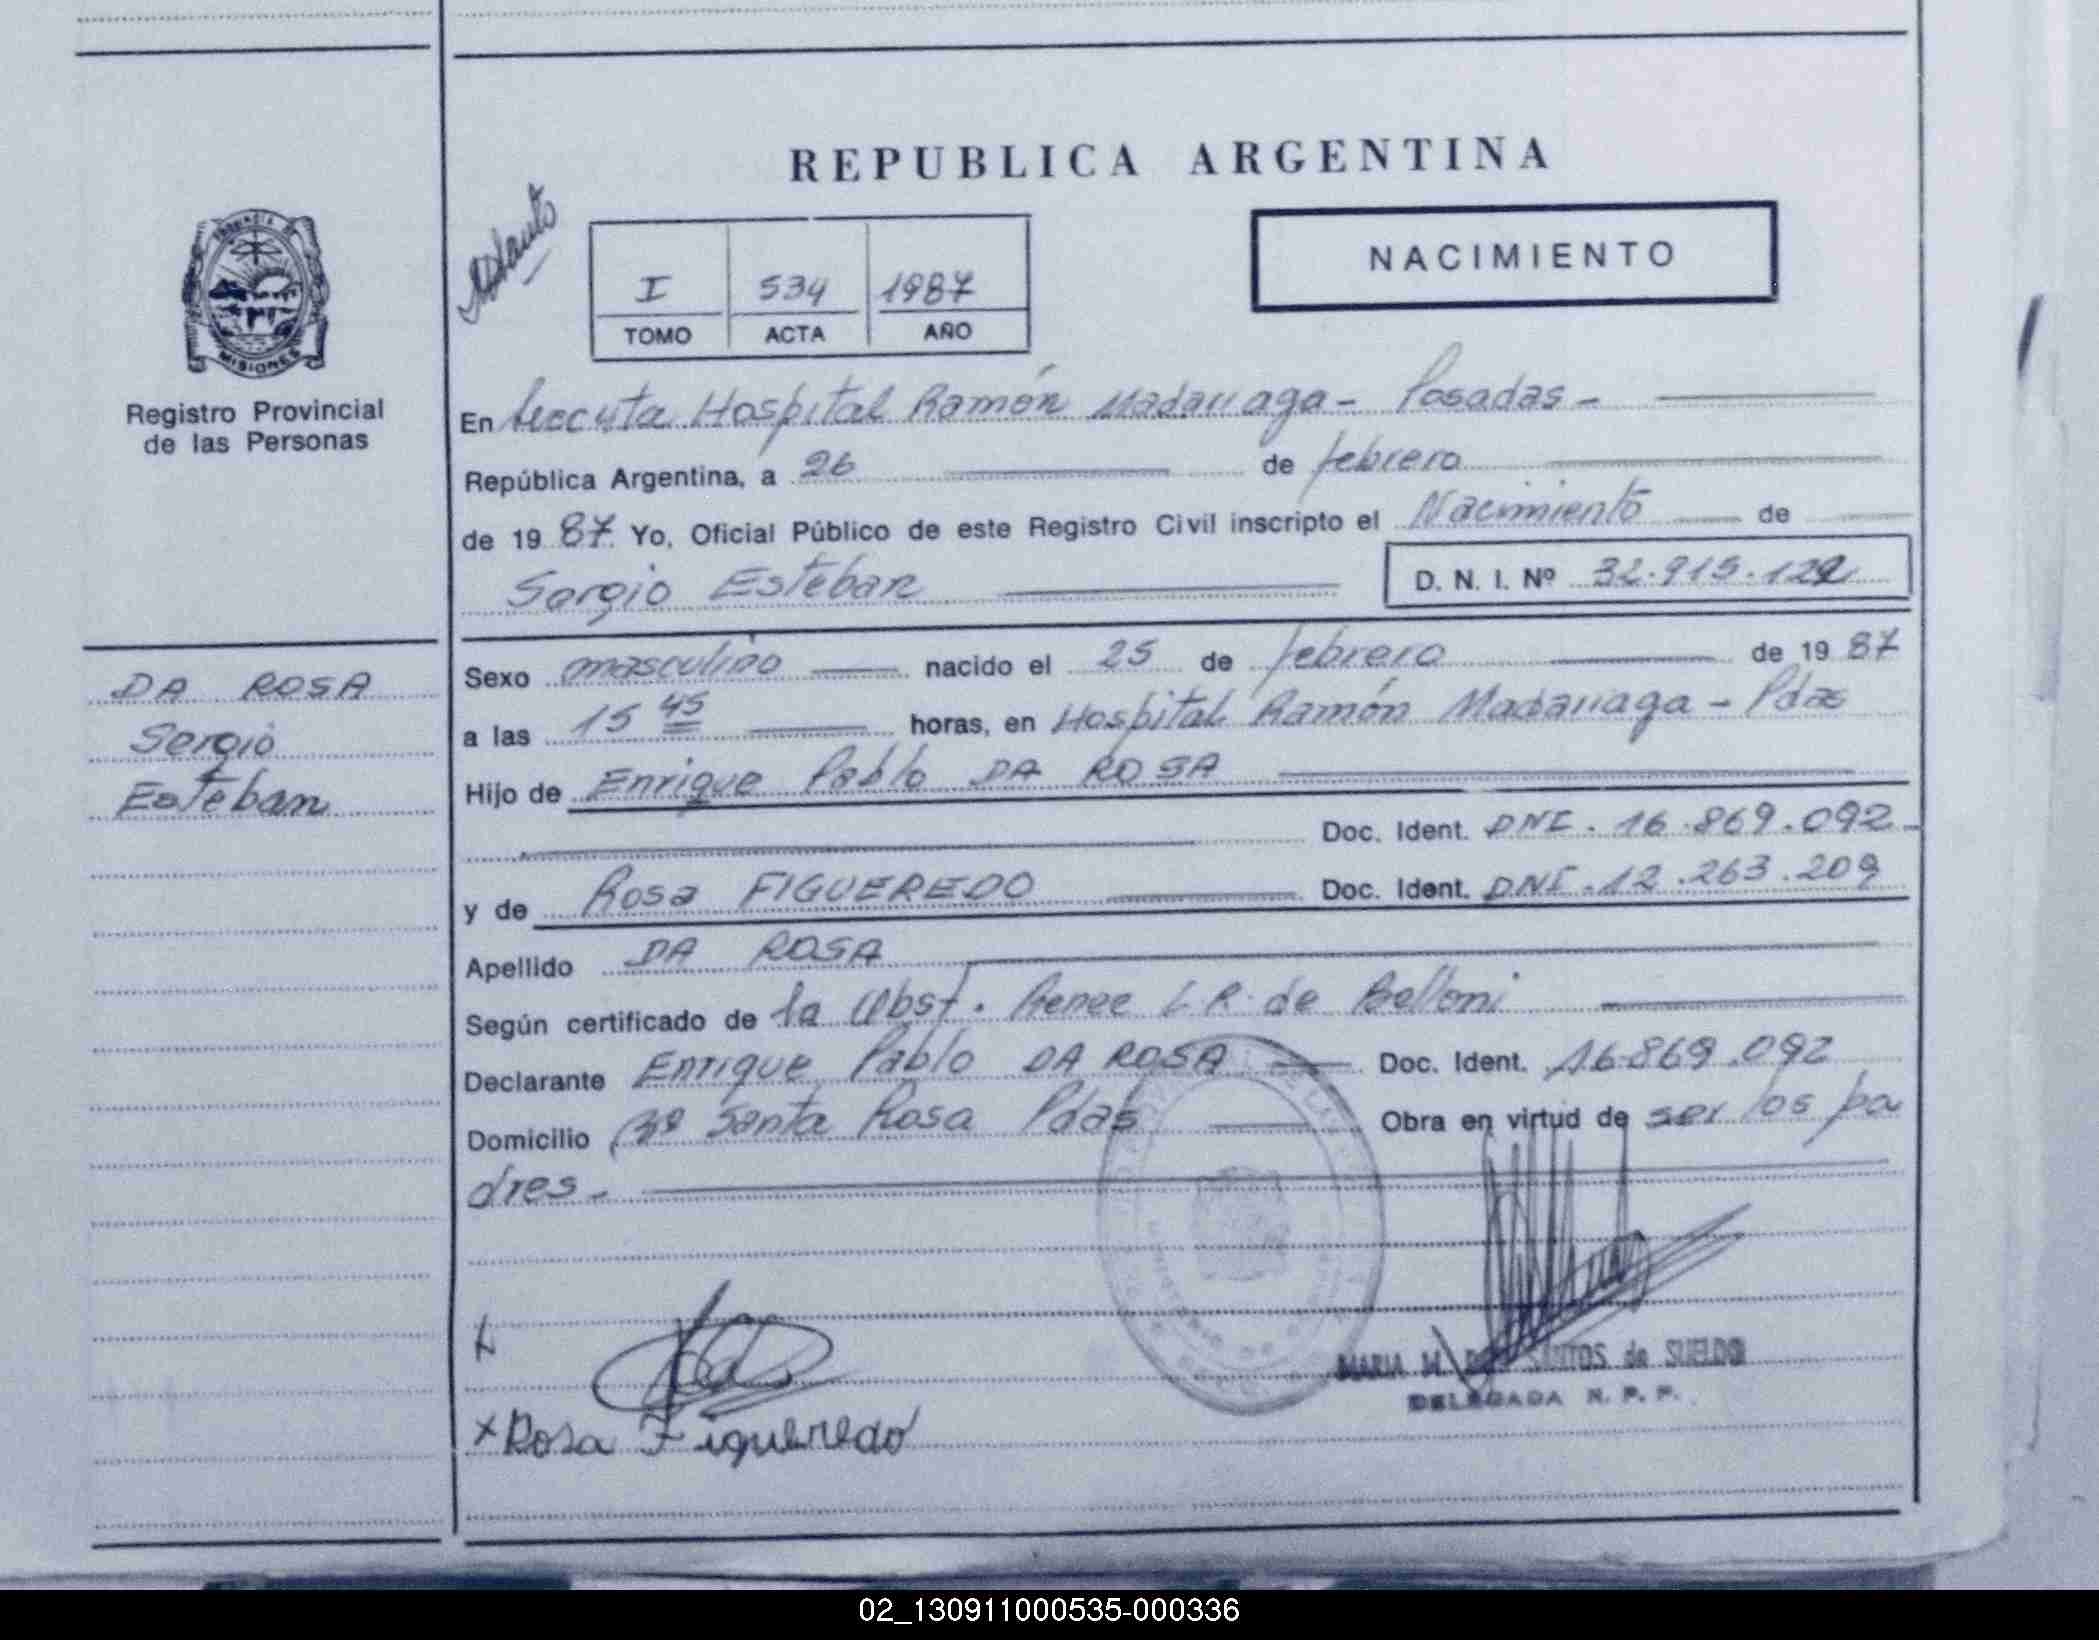 REPUBLICA ARGENTINA
NACIMIENTO
I 534 1987
TOMO ACTA AÑO
PROVINCIA DE
MISIONES
Registro Provincial
de las Personas
DA ROSA
Sergio
Esteban
En Hospital Ramón Madariaga - Posadas -
República Argentina, a 26 de febrero
de 1987. Yo, Oficial Público de este Registro Civil inscripto el Nacimiento de
Sergio Esteban D. N. I. Nº 32.915.122
Sexo masculino nacido el 25 de febrero de 1987
a las 15 45 horas, en Hospital Ramón Madariaga - Pdas
Hijo de Enrique Pablo DA ROSA
Doc. Ident. DNI. 16.869.092
y de Rosa FIGUEREDO Doc. Ident. DNI. 12.263.209
Apellido DA ROSA
Según certificado de la Obst. Renee L.R. de Belloni
Declarante Enrique Pablo DA ROSA Doc. Ident. 16.869.092
Domicilio Santa Rosa Pdas Obra en virtud de ser los pa
dres.
MARIA M. DOS SANTOS de SUELDO
DELEGADA R. P. P.
x Rosa Figueredo
02_130911000535-000336